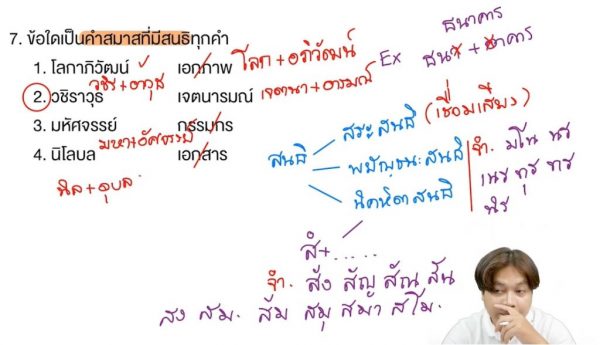 7. ข้อใดเป็นคำสมาสที่มีสนธิทุกคำ
1. โลกาภิวัฒน์ เอกภาพ โลก + อภิวัฒน์
วชิร + อาวุธ
2. วชิราวุธ เจตนารมณ์ เจตนา + อารมณ์
3. มหัศจรรย์ กรรมกร
มหา + อัศจรรย์
4. นิโลบล เอกสาร
นิล + อุบล
Ex ธนาคาร
ธน + อาคาร
สนธิ
สระสนธิ (เชื่อมเสียง)
พยัญชนะสนธิ
นิคหิตสนธิ
จำ. มโน นร
เนร ทุร ทร
นิร
สํ + .....
จำ. สัง สัญ สัณ สัน
สง สม. สัม สมุ สมา สโม.